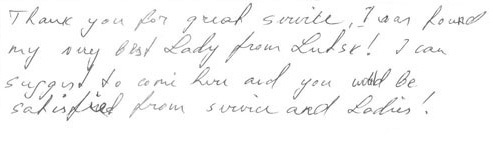 Thank you for great service, I was found
my very best Lady from Lutsk! I can
suggest to come here and you would be
satisfied from service and Ladies!